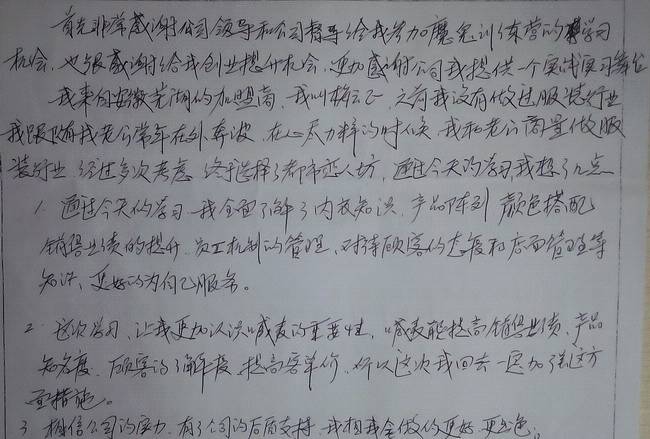 首先非常感谢公司领导和公司督导给我参加魔鬼训练营的学习
机会，也很感谢给我创业提升机会，更加感谢公司我提供一个实战演习舞台
我来自安徽芜湖的加盟商，我叫，之前我没有做过服装行业
我跟随我老公常年在外奔波，在心太力粹的时候，我和老公商量做服
装行业，经过多次考虑，终于选择了都市恋人坊，通过今天的学习，我想了几点
1. 通过今天的学习，我全面了解了内衣知识，产品陈列，颜色搭配
销售业绩的提升，员工机制的管理，对待顾客的态度和店面管理等
知识，更好的为自己服务。
2. 这次学习，让我更加认识"成友的重要性，"成友能提高销售业绩、产品
知名度、顾客的了解度，提高客单价，所以这次我回去一定加强这方
面措施。
3. 相信公司的实力，有了公司的后盾支持，我相我会做的更好，更出色；